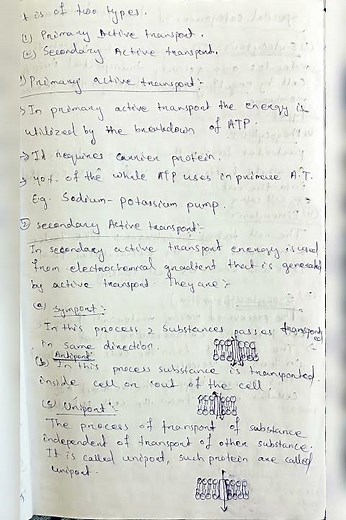 t is of two types.
(1) Primary Active transport.
(2) Secondary Active transport.
1) Primary active transport :-
→ In primary active transport the energy is
utilized by the breakdown of ATP.
→ It requires carrier protein.
→ 40% of the whole ATP uses in A.T.
Eg. Sodium-potassium pump.
(2) secondary Active transport :-
In secondary active transport energy is used
from electrochemical gradient that is generated
by active transport They are :-
(a) Symport :-
In this process 2 substances pass as transported
in same direction.
(b) Antiport
In this process substance is transported
inside cell or out of the cell.
(c) Uniport :-
The process of transport of substance
independent of transport of other substance.
It is called uniport, such protein are called
uniport.